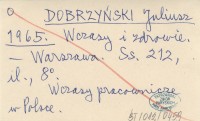 DOBRZYŃSKI Juliusz
1965. Wczasy i zdrowie.
— Warszawa. Ss. 212,
il., 8°.
Wczasy pracownicze
w Polsce.